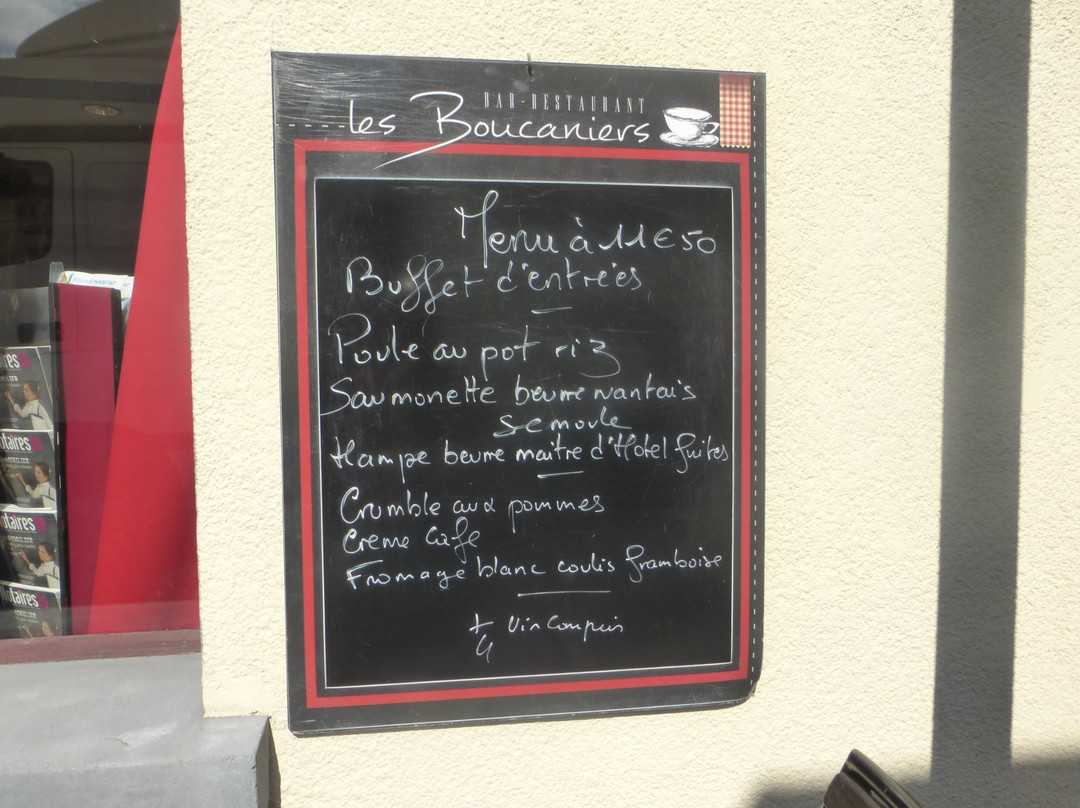 BAR-RESTAURANT
les Boucaniers
Menu à 11€50
Buffet d'entrées
Poule au pot riz
Saumonette beurre nantais
semoule
Hampe beurre maitre d'Hotel frites
Crumble aux pommes
Creme Café
Fromage blanc coulis framboise
+ Vin Compris
1/4
otaires
otaires
otaires